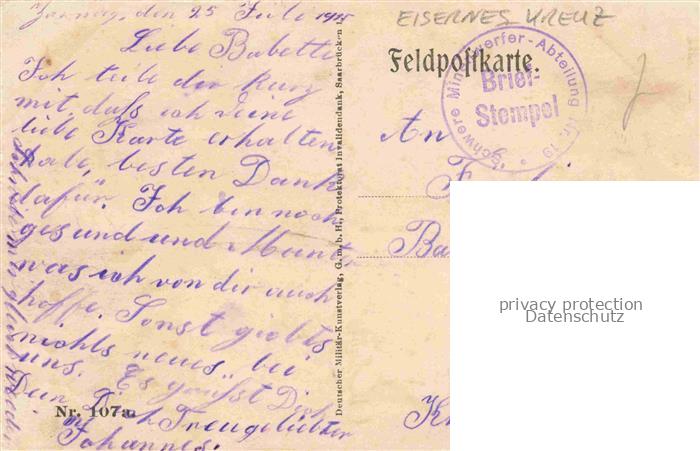 den 25 Juli 1915
Liebe Babette
Ich teile dir kurz
mit, daß ich deine
liebe Karte erhalten
habe, besten Dank
dafür. Ich bin noch
gesund und Munter
was ich von dir auch
hoffe. Sonst giebts
nichts neues bei
uns. Es grüßt Dich
Dein Dich Treugeliebter
Johannes.
Nr. 107a.
Deutscher Militär-Kunstverlag, G. m. b. H., Protektorat Invalidendank, Saarbrücken 1.
EISERNES KREUZ
Feldpostkarte.
Schwere Minenwerfer-Abteilung Nr. 19
Brief-
Stempel
An
privacy protection
Datenschutz